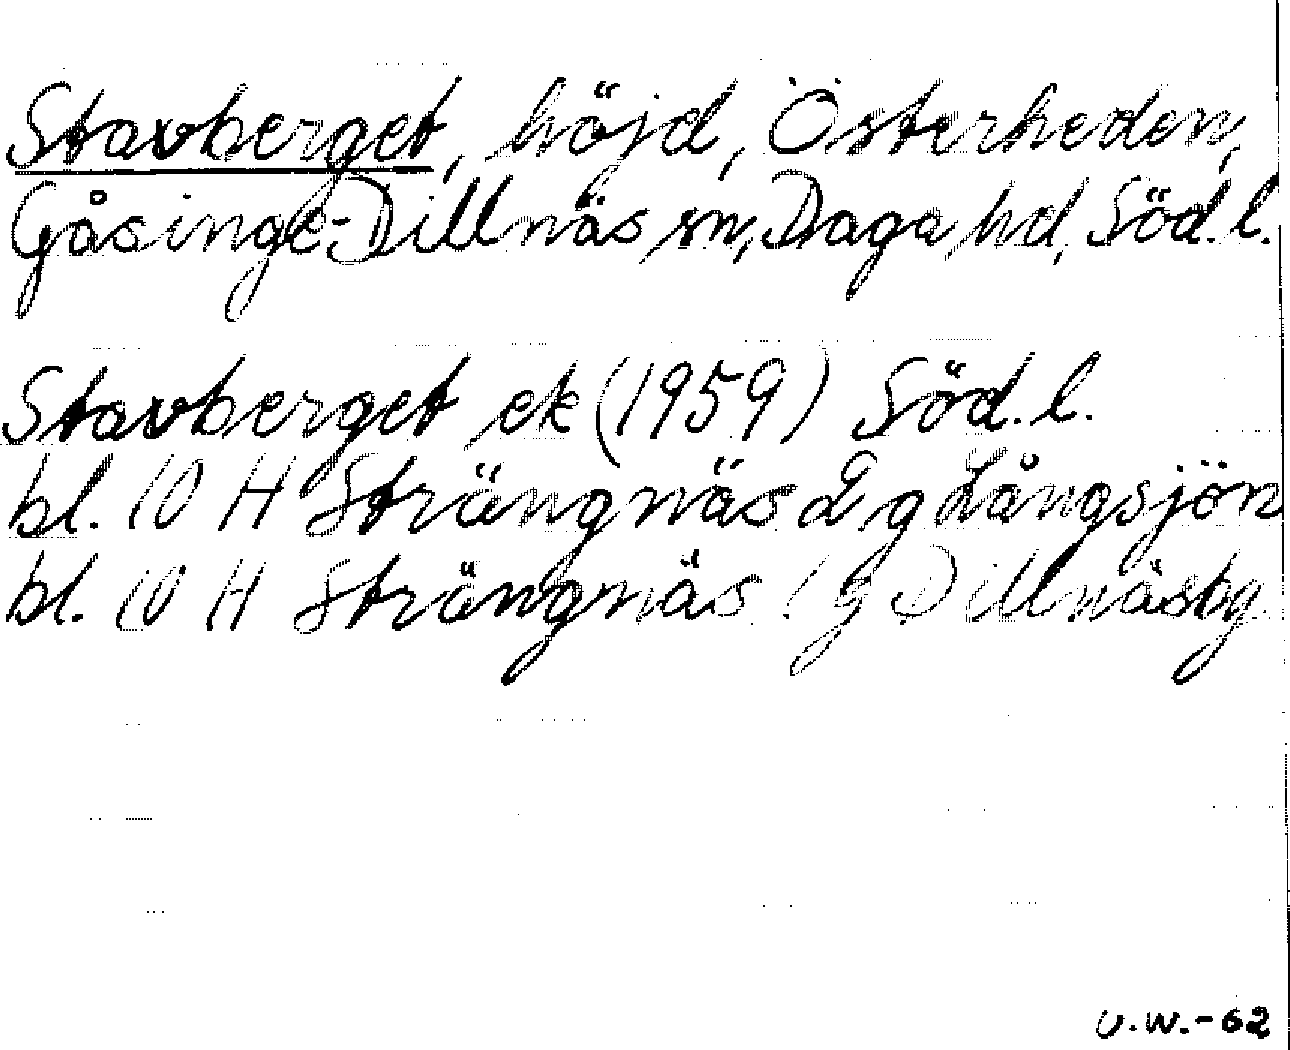 Stavberget, höjd, Österheden,
Gåsinge-Dillnäs sn, Daga hd, Söd. l.
Stavberget ek (1959) Söd. l.
bl. 10 H Strängnäs 2 g Långsjön
bl. 10 H Strängnäs 1 g Dillnäsby
U.W.-62